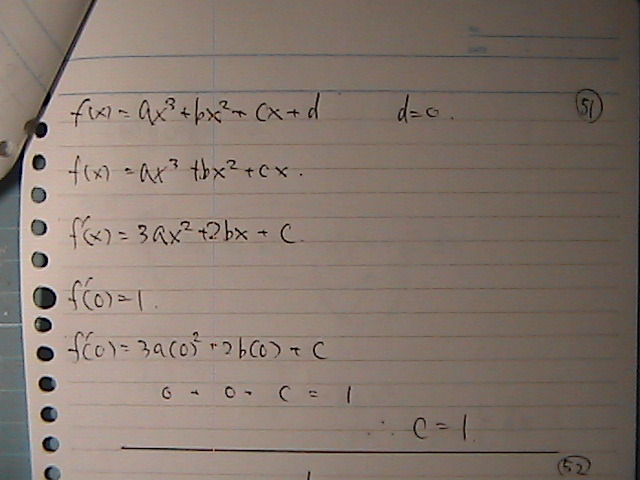 f(x) = ax³ + bx² + cx + d d = 0. 51
f(x) = ax³ + bx² + cx.
f'(x) = 3ax² + 2bx + c.
f'(0) = 1.
f'(0) = 3a(0)² + 2b(0) + c
0 + 0 + c = 1
∴ c = 1.
52